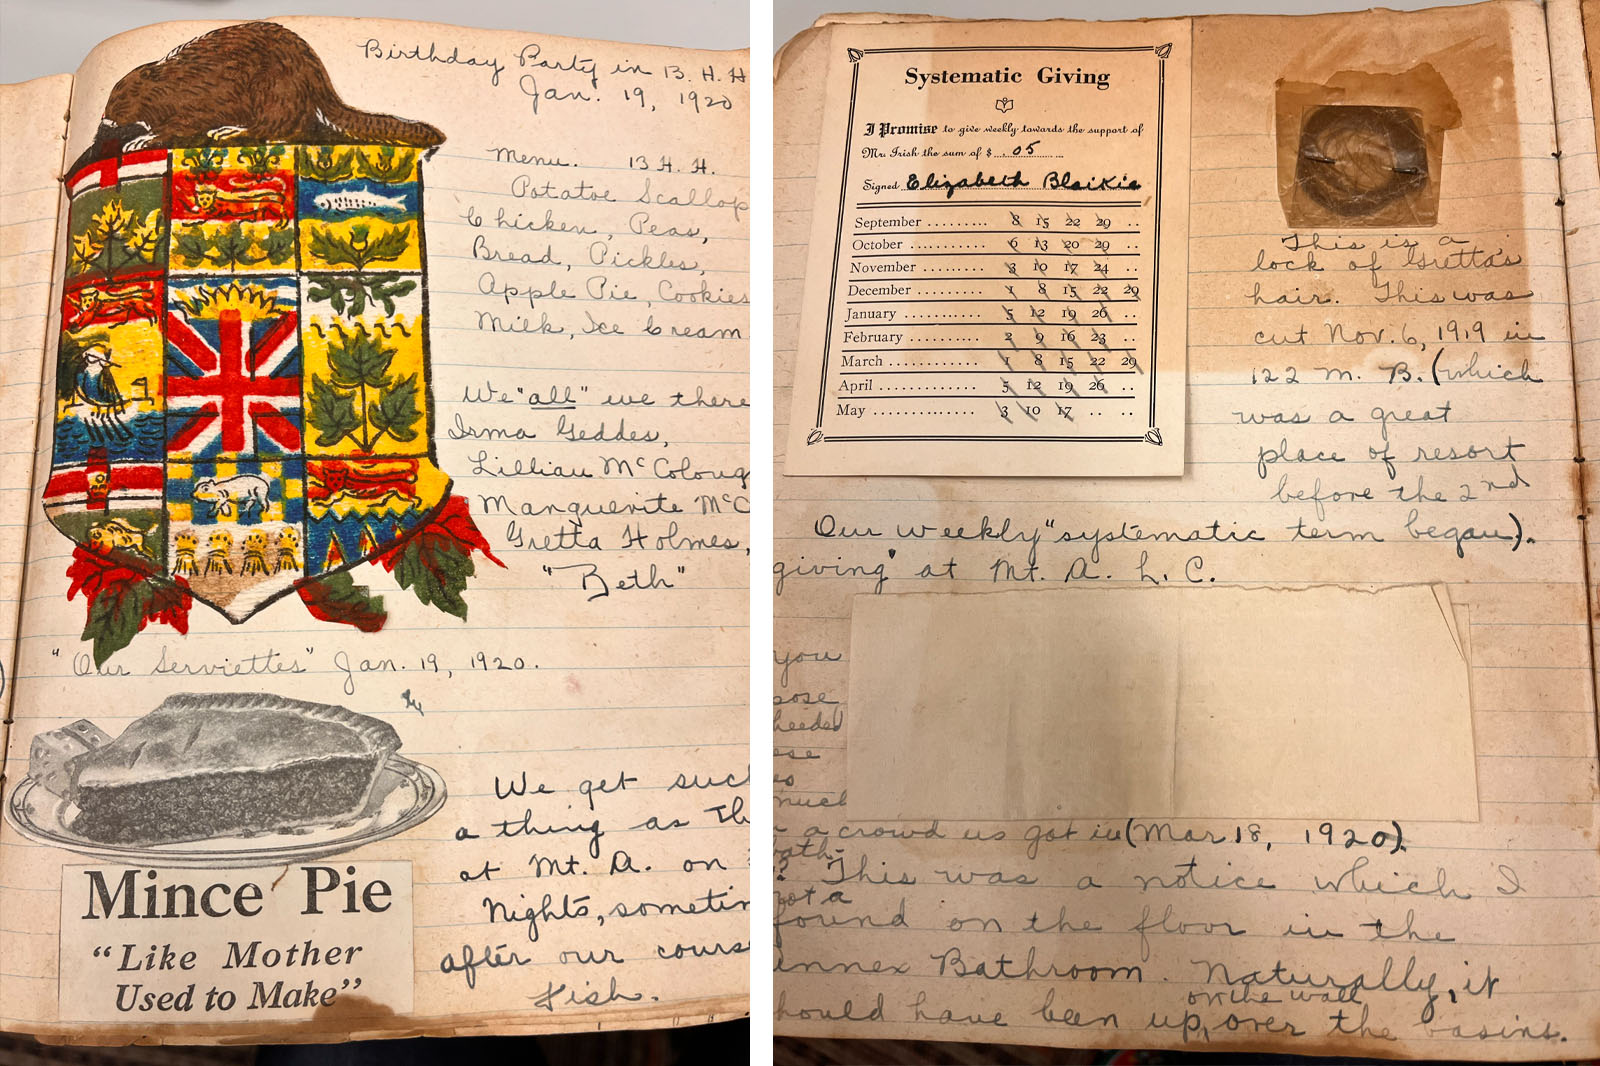 Birthday Party in B. H. H
Jan. 19, 1920
Menu. B H. H.
Potatoe Scallop
Chicken, Peas,
Bread, Pickles,
Apple Pie, Cookies
Milk, Ice Cream
We "all" we there
Irma Geddes,
Lillian McColoug
Manguerite McC
Gretta Holmes,
"Beth"
"Our Serviettes" Jan. 19, 1920.
We get such
a thing as th
at Mt. A. on
Nights, sometim
after our course
Fish.
Mince Pie
"Like Mother
Used to Make"
Systematic Giving
I Promise to give weekly towards the support of
Mr. Irish the sum of $ .05
Signed Elizabeth Blaikie
September 8 15 22 29
October 6 13 20 29
November 3 10 17 24
December 1 8 15 22 29
January 5 12 19 26
February 2 9 16 23
March 1 8 15 22 29
April 5 12 19 26
May 3 10 17
This is a
lock of Gretta's
hair. This was
cut Nov. 6, 1919 in
122 M. B. (which
was a great
place of resort
before the 2nd
term began).
Our weekly "systematic
giving" at Mt. A. L. C.
you
pose
heeded
ese
es
much
a crowd us got in (Mar 18, 1920).
ath-
?
not a
This was a notice which I
found on the floor in the
annex Bathroom. Naturally, it
should have been up, on the wall over the basins.